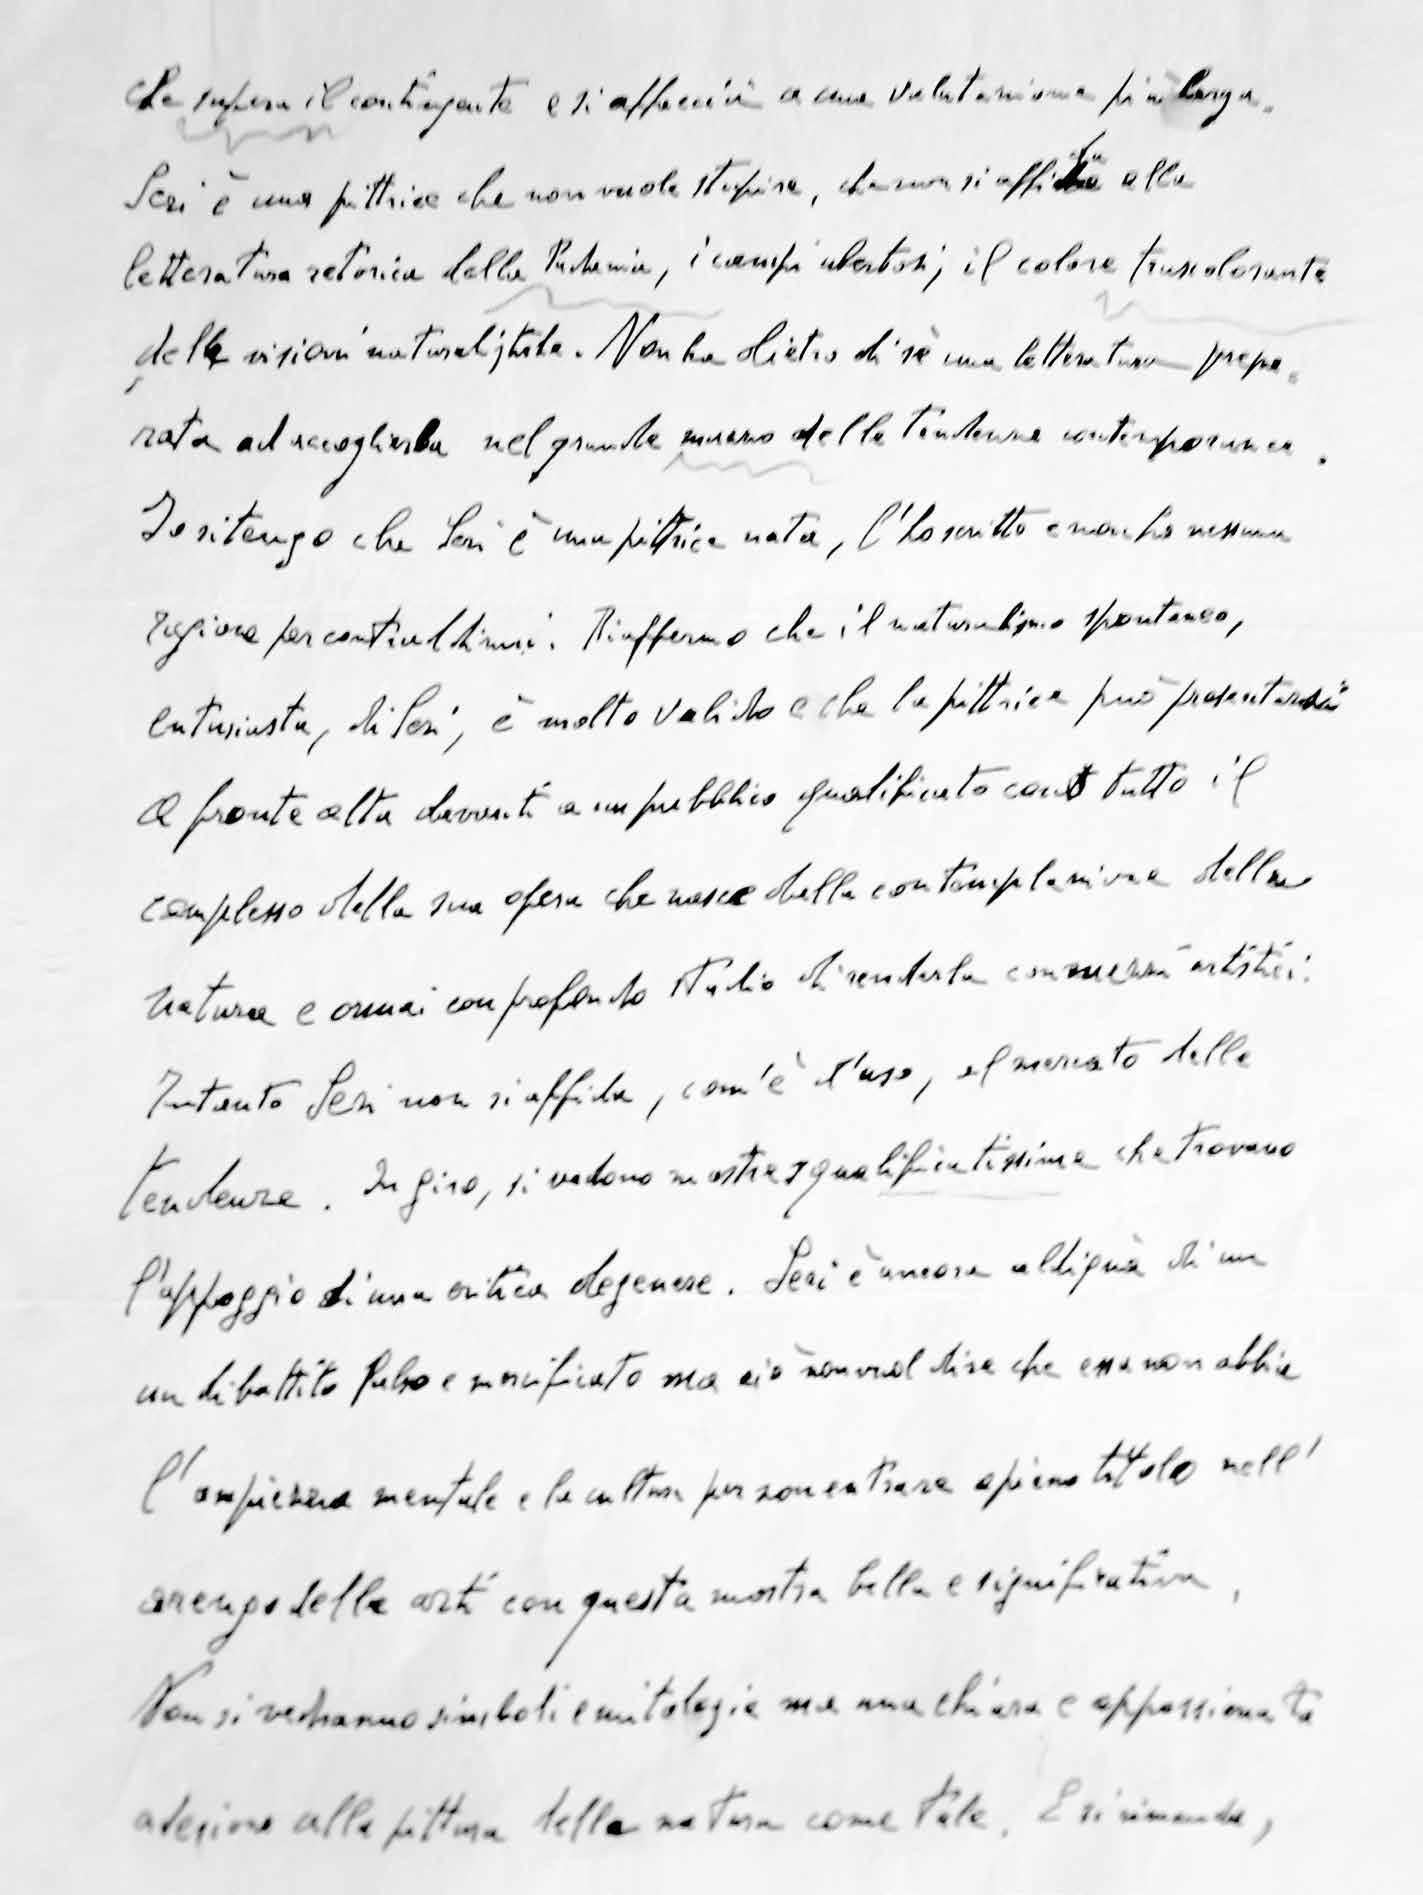 che supera il contingente e si affacci a una valutazione più larga.
Seri è una pittrice che non vuole stupire, che non si affida alla
letteratura retorica della, i campi ubertosi, il colore trascolorante
delle visioni naturalistiche. Non ha dietro di sè una letteratura prepa-
rata ad accoglierla nel grande museo delle tendenze contemporanee.
Io ritengo che Seri è una pittrice nata, l'ho scritto e non ho nessuna
ragione per contraddirmi. Riaffermo che il naturalismo spontaneo,
entusiasta, di Seri, è molto valido e che la pittrice può presentarsi
a fronte alta davanti a un pubblico qualificato con tutto il
complesso della sua opera che nasce dalla contemplazione della
natura e ormai con profondo studio di renderla con mezzi artistici.
Intanto Seri non si affida, com'è d'uso, al mercato delle
tendenze. In giro, si vedono mostre squalificatissime che trovano
l'appoggio di una critica degenere. Seri è ancora aldiquà di un
un dibattito falso e mercificato ma ciò non vuol dire che essa non abbia
l'ampiezza mentale e la cultura per non entrare a pieno titolo nell'
arengo delle arti con questa mostra bella e significativa.
Non si vedranno simboli e mitologie ma una chiara e appassionata
adesione alla pittura della natura come tale. E si rimanda,